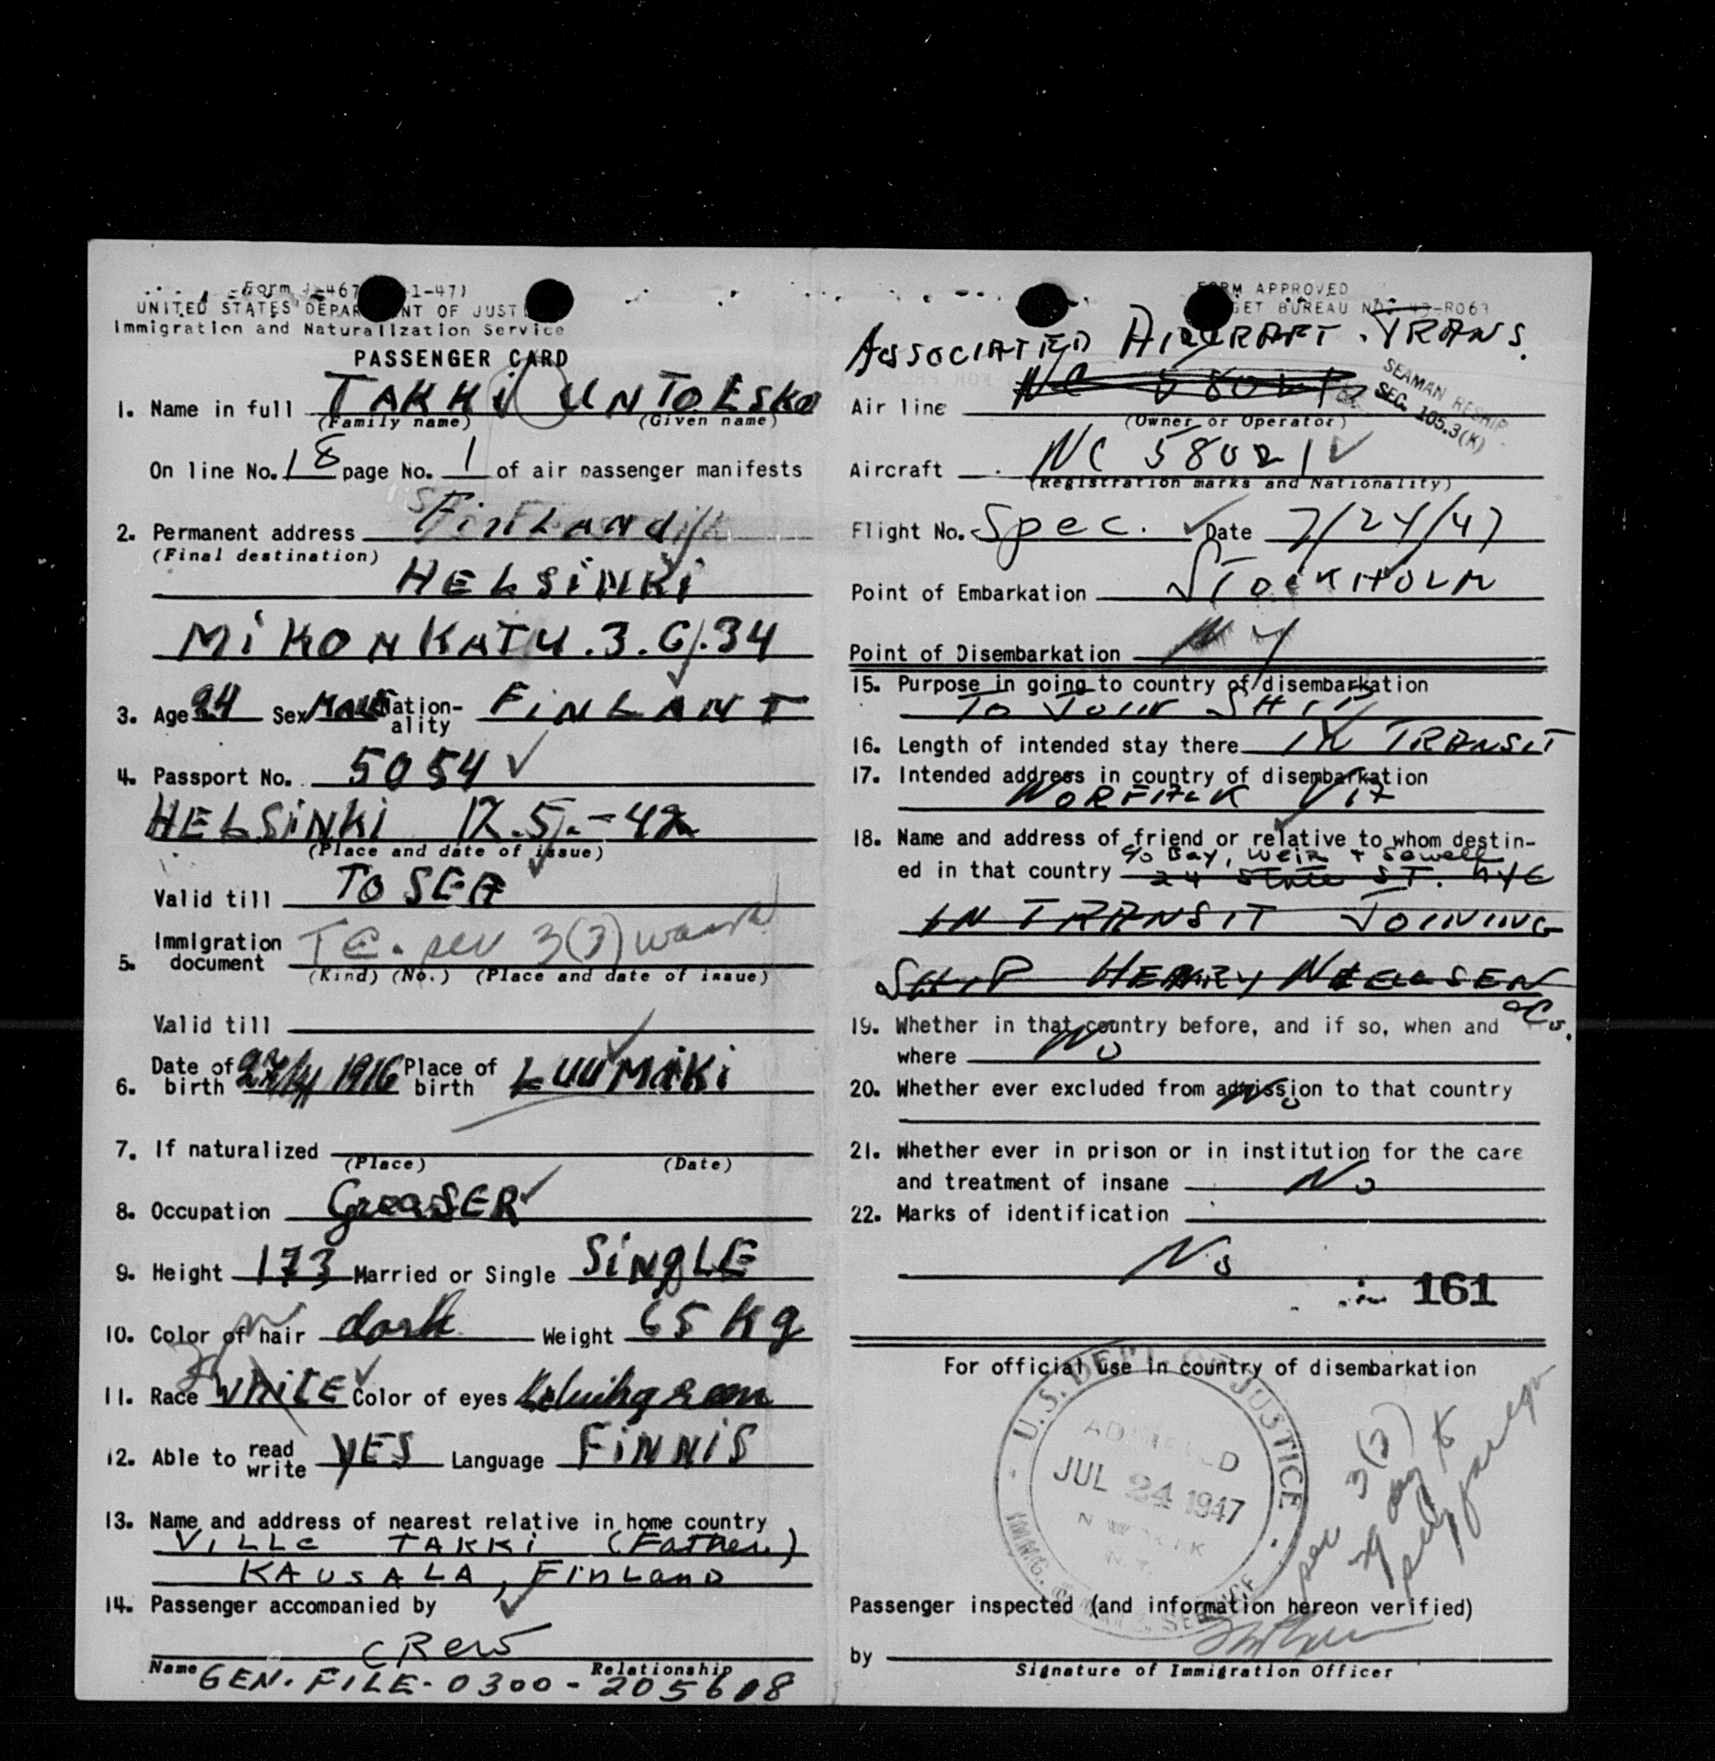 Form I-467 1-47)
UNITED STATES DEPARTMENT OF JUST
Immigration and Naturalization Service
PASSENGER CARD
1. Name in full TAKKI UNTO ESKO
(Family name) (Given name)
On line No. 18 page No. 1 of air passenger manifests
2. Permanent address FiNLANd
(Final destination)
HELSiNKi
MiKONKATU.3.G.34
3. Age Sex MALE Nation-ality FiNLANT
4. Passport No. 5054
HELSiNKi 12.5.-42
(Place and date of issue)
Valid till TO SEA
5. Immigration document 3(7)
(Kind) (No.) (Place and date of issue)
Valid till
6. Date of birth 1916 Place of birth LUUMÄKi
7. If naturalized
(Place) (Date)
8. Occupation GreaSER
9. Height 173 Married or Single SiNgLE
10. Color of hair dark Weight 65 Kg
11. Race WHITE Color of eyes
12. Able to read write YES Language FiNNiS
13. Name and address of nearest relative in home country
ViLLE TAKKi (Father)
KAUSALA, FinLAND
14. Passenger accompanied by
CREW
Name Relationship
GEN. FILE-0300-205608
FORM APPROVED
GET BUREAU NO. 43-R063
ASSOCIATED AIRCRAFT TRANS.
SEAMAN RESHIP
SEC. 105.3(K)
Air line
(Owner or Operator)
Aircraft NC 58021
(Registration marks and Nationality)
Flight No. Spec. Date 7/24/47
Point of Embarkation STOCKHOLM
Point of Disembarkation NY
15. Purpose in going to country of disembarkation
TO JOIN SHIP
16. Length of intended stay there IN TRANSIT
17. Intended address in country of disembarkation
NORFOLK
18. Name and address of friend or relative to whom destin-
c/o Bay, Weir + Sewell
ed in that country 24 State ST. NYC
IN TRANSIT JOINING
SHIP HENRY
19. Whether in that country before, and if so, when and
where No
20. Whether ever excluded from admission to that country
No
21. Whether ever in prison or in institution for the care
and treatment of insane No
22. Marks of identification
No
161
For official use in country of disembarkation
U.S. DEPT. OF JUSTICE
ADMITTED
JUL 24 1947
NEW YORK
N.Y.
IMMG. SERVICE
Passenger inspected (and information hereon verified)
by
Signature of Immigration Officer